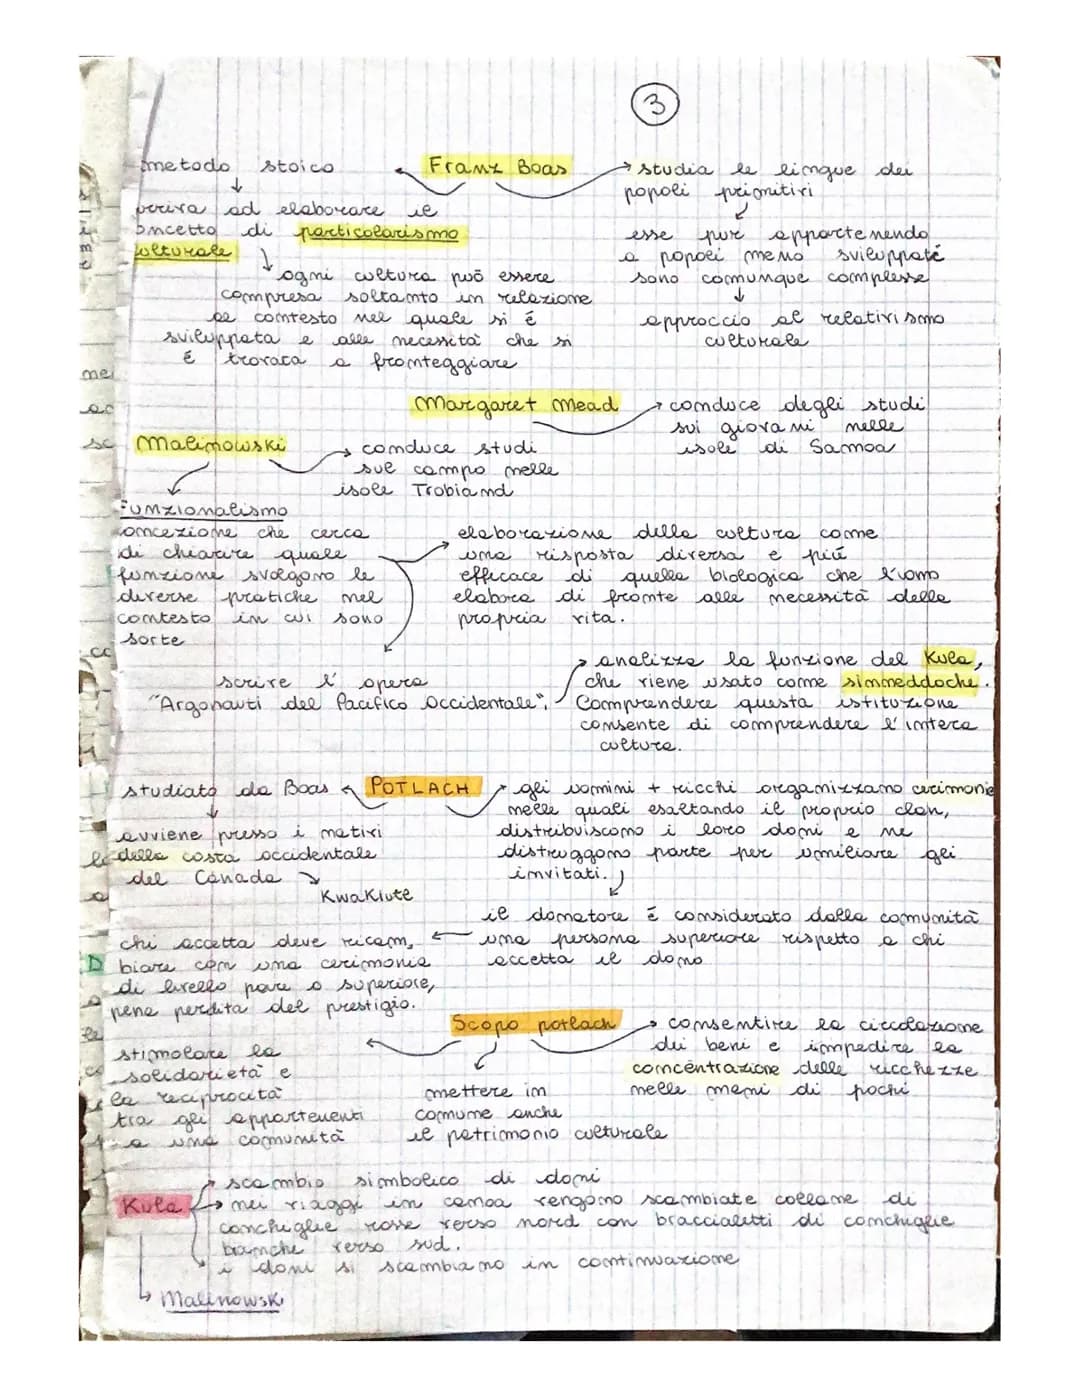 3
metodo stoico
Franz Boas
studia le lingue dei
popoli primitivi
esse pur appartenendo
a popoli meno sviluppate
sono comunque complesse
approccio al relativismo
culturale
ad elaborare il
oncetto di particolarismo
culturale
ogni cultura può essere
compresa soltanto in relazione
al contesto nel quale si é
sviluppata e alle necessità che si
é trovata a fronteggiare
Margaret Mead
conduce degli studi
sui giovani nelle
isole di Samoa
Malinowski
conduce studi
sul campo nelle
isole Trobiand
Funzionalismo
concezione che cerca
di chiarire quale
funzione svolgono le
diverse pratiche nel
contesto in cui sono
sorte
elaborazione della cultura come
una risposta diversa e piú
efficace di quella biologica che l'uomo
elabora di fronte alle necessità della
propria vita.
scrive l'opera
"Argonauti del Pacifico Occidentale";
analizza la funzione del Kula,
che viene usato come simmeddoche.
Comprendere questa istituzione
consente di comprendere l'intera
cultura.
POTLACH
studiato da Boas
avviene presso i nativi
della costa occidentale
del Canada
Kwakiute
gli uomini + ricchi organizzano cerimonie
nelle quali esaltando il proprio clan,
distribuiscono i loro doni e ne
distruggono parte per umiliare gli
invitati.
il donatore é considerato dalla comunità
una persona superiore rispetto a chi
accetta il dono
chi accetta deve ricam,
biare con una cerimonia
di livello pari o superiore,
pena perdita del prestigio.
Scopo potlach
consentire la circolazione
dei beni e impedire la
concentrazione delle ricchezze
nelle mani di pochi
mettere in
comune anche
il patrimonio culturale
stimolare la
solidarietà e
la reciprocità
tra gli appartenenti
a una comunità
Kula
scambio simbolico di doni
nei viaggi in canoa vengono scambiate collane di
conchiglie rosse verso nord con braccialetti di conchiglie
bianche verso sud.
i doni si scambiano in continuazione
Malinowski